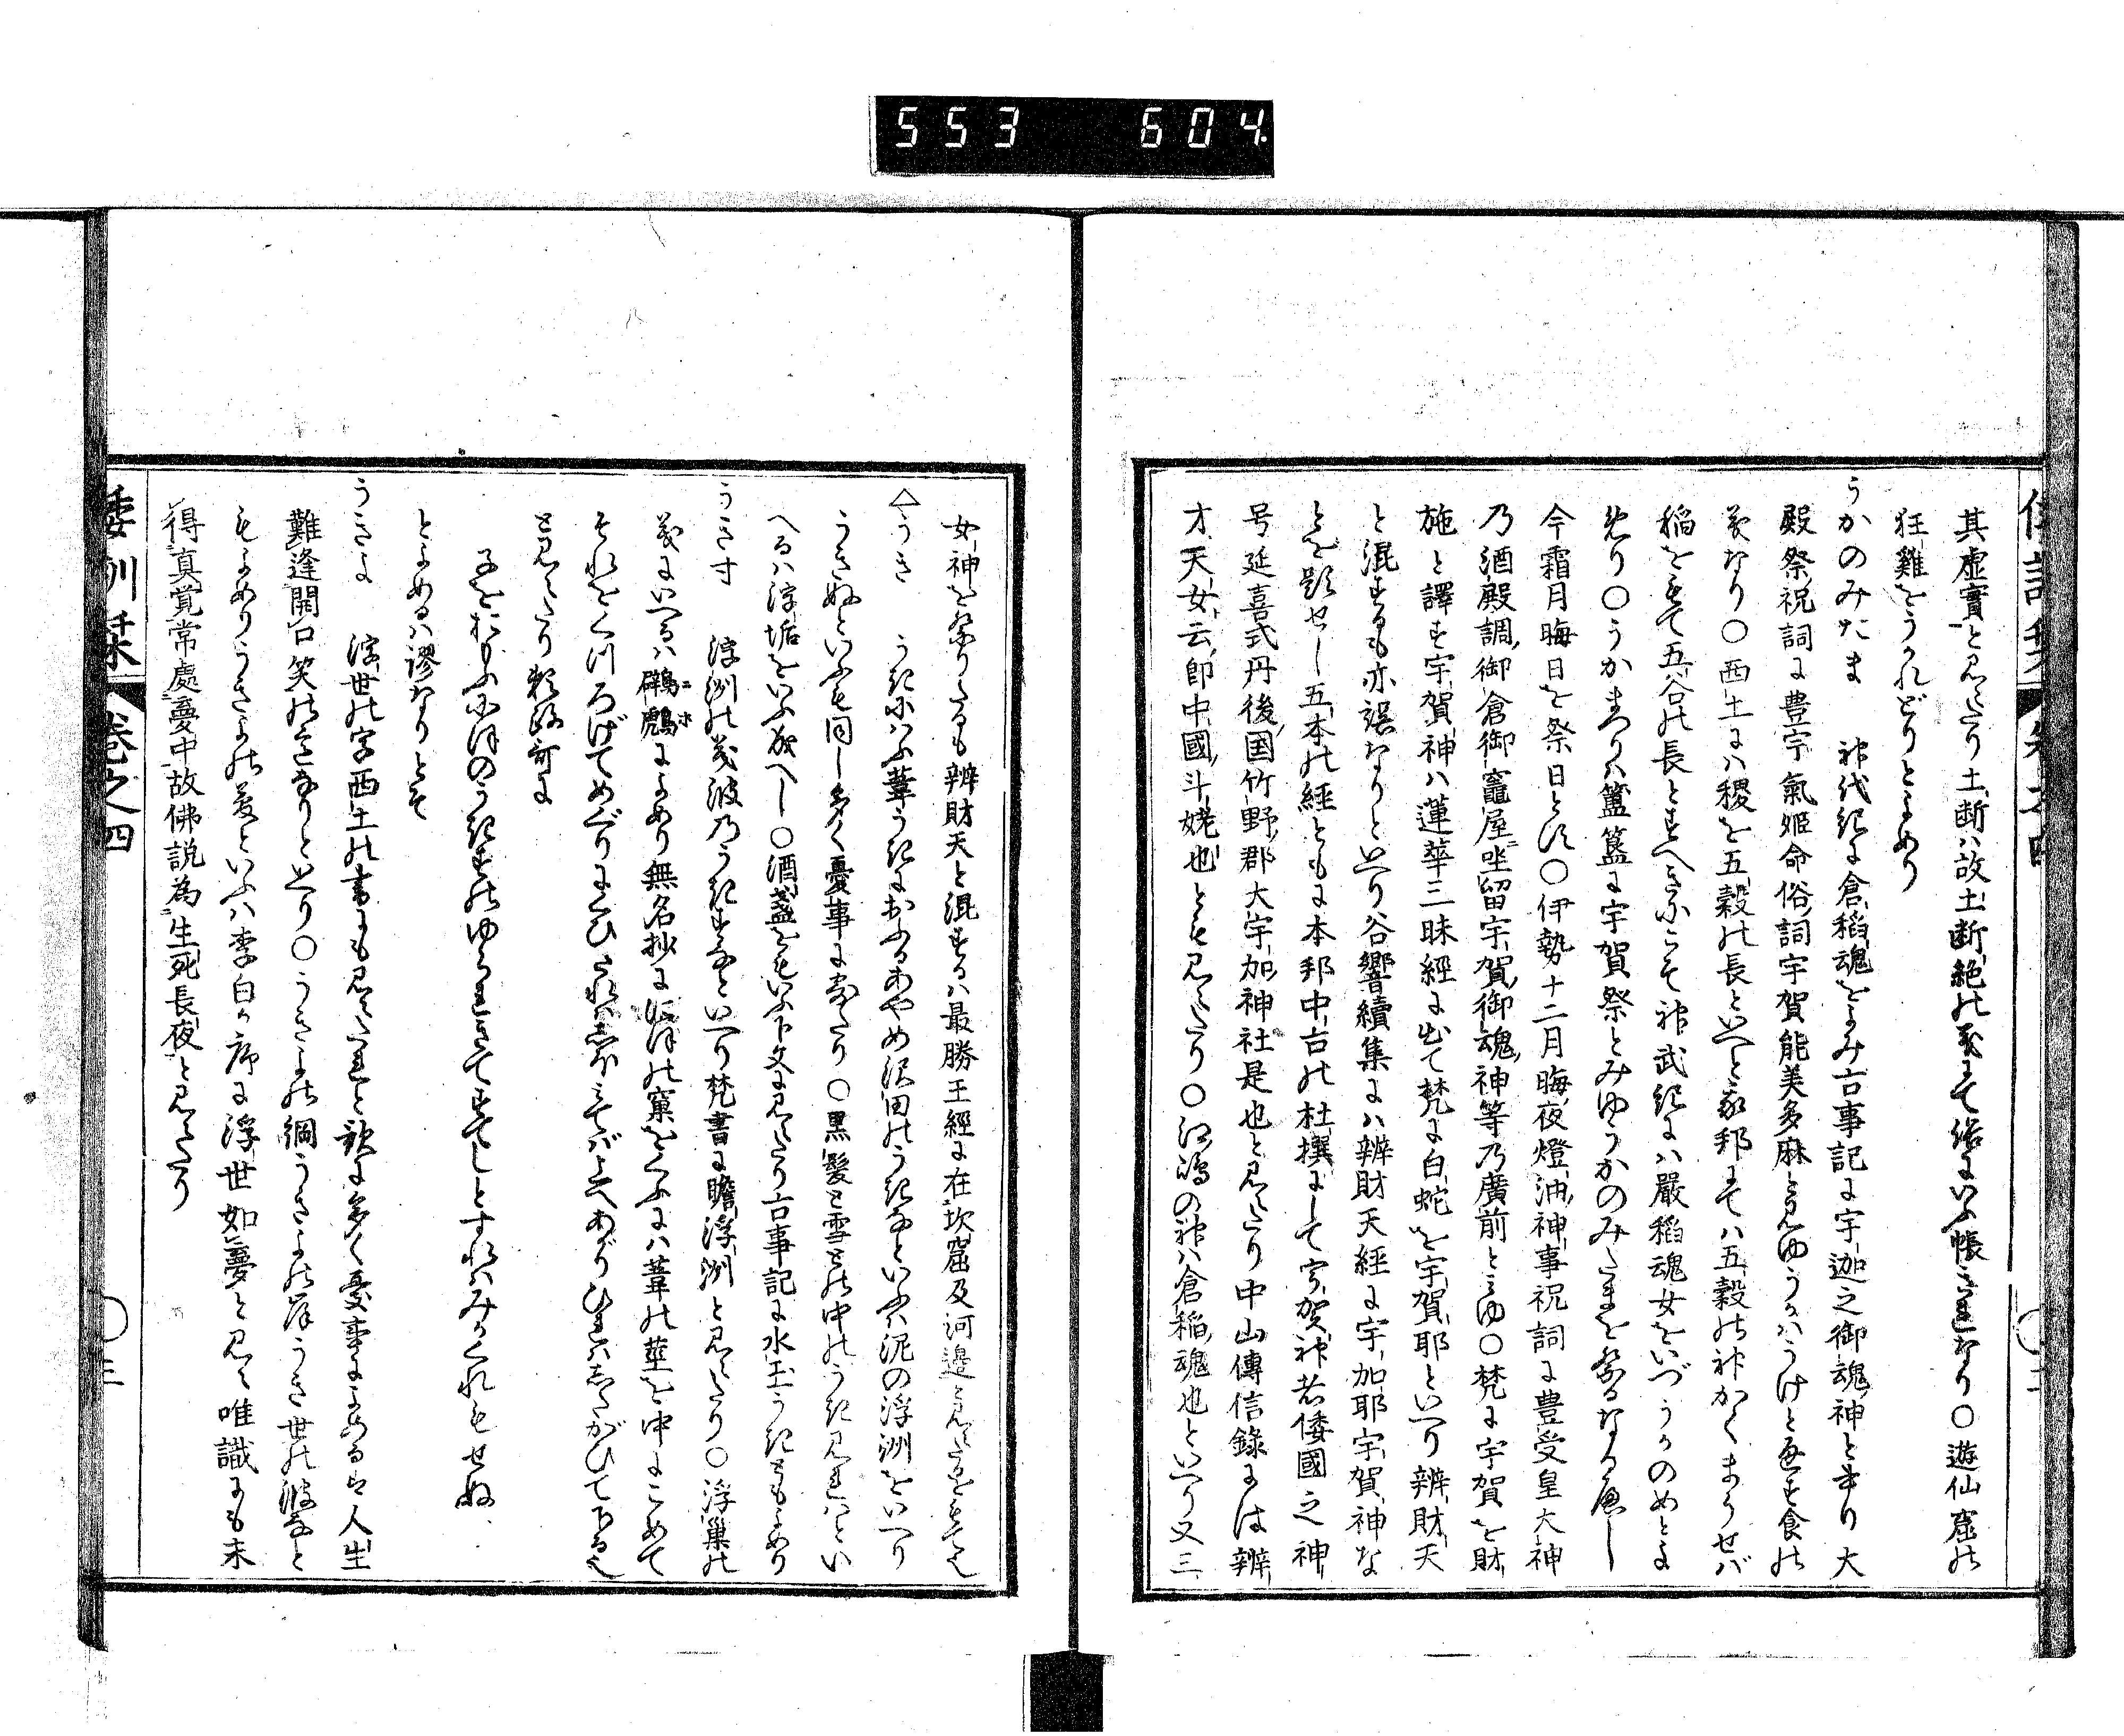 553 604
其虚實と見えたり土断ハ故土断絶の義にて俗にいふ帳きれなり〇遊仙窟の
狂雞をうかれどりとよめり
うかのみたま 神代紀に倉稲魂をよみ古事記に宇迦之御魂神と書り大
殿祭祝詞に豊宇氣姫命俗詞宇賀能美多麻と見ゆうかハうけと通す食の
義なり〇西土にハ稷を五穀の長といへと我邦にてハ五穀の神かくまうせバ
稲をもて五谷の長とすへきにこそ神武紀にハ嚴稻魂女をいづうかのめとよ
めり〇うかまつりハ簠簋に宇賀祭とみゆうかのみたまを祭るなるへし
今霜月晦日を祭日とす〇伊勢十二月晦夜燈油神事祝詞に豊受皇大神
乃酒殿調御倉御竈屋坐留宇賀御魂神等乃廣前とみゆ〇梵に宇賀を財
施と譯す宇賀神ハ蓮華三昧經に出て梵に白蛇を宇賀耶といへり辨財天
と混するも亦誤なりといへり谷響續集にハ辨財天經に宇加耶宇賀神な
とを影せし五本の経ともに本邦中古の杜撰にして宇賀神者倭國之神
号延喜式丹後国竹野郡大宇加神社是也と見えたり中山傳信錄には辨
才天女云即中國斗姥也とも見えたり〇江嶋の神ハ倉稲魂也といへり又三
女神を祭りたるも辨財天と混するハ最勝王經に在坎窟及河邊と見えたるをもて也
△うき うきにハふ葦うきにおふるあやめ沢田のうきなといふハ泥の浮洲をいへり
うきぬといふも同し多く憂事に寄たり〇黒髪と雪との中のうき見れハとい
へるハ浮垢をいふ成へし〇酒盞をもいふ下文に見えたり古事記に水玉うきともよめり
うきす 浮洲の義波のうきすなといへり梵書に瞻浮洲と見えたり〇浮巣の
義にいへるハ鸊鷉ニホによめり無名抄ににほの窠をくふにハ葦の莖を中にこめて
それをくつろげてめぐりにくひたれハしほみてバ上へあがりひれハしたがひて下る也
と見えたり頼政哥に
子をおもふにほのうきすのゆられきてすてしとすれハみかくれもせぬ
とよめるハ謬なりとそ
うきよ 浮世の字西土の書にも見えたれと歌に多く憂事によめるは人生
難逢開口笑の意なりといへり〇うきよの綱うきよの岸うき世の波なと
もよめりうきよの夢といふハ李白か序に浮世如夢と見え唯識にも未
得真覚常處夢中故佛説為生死長夜と見えたり
倭訓栞 巻之四 〇三